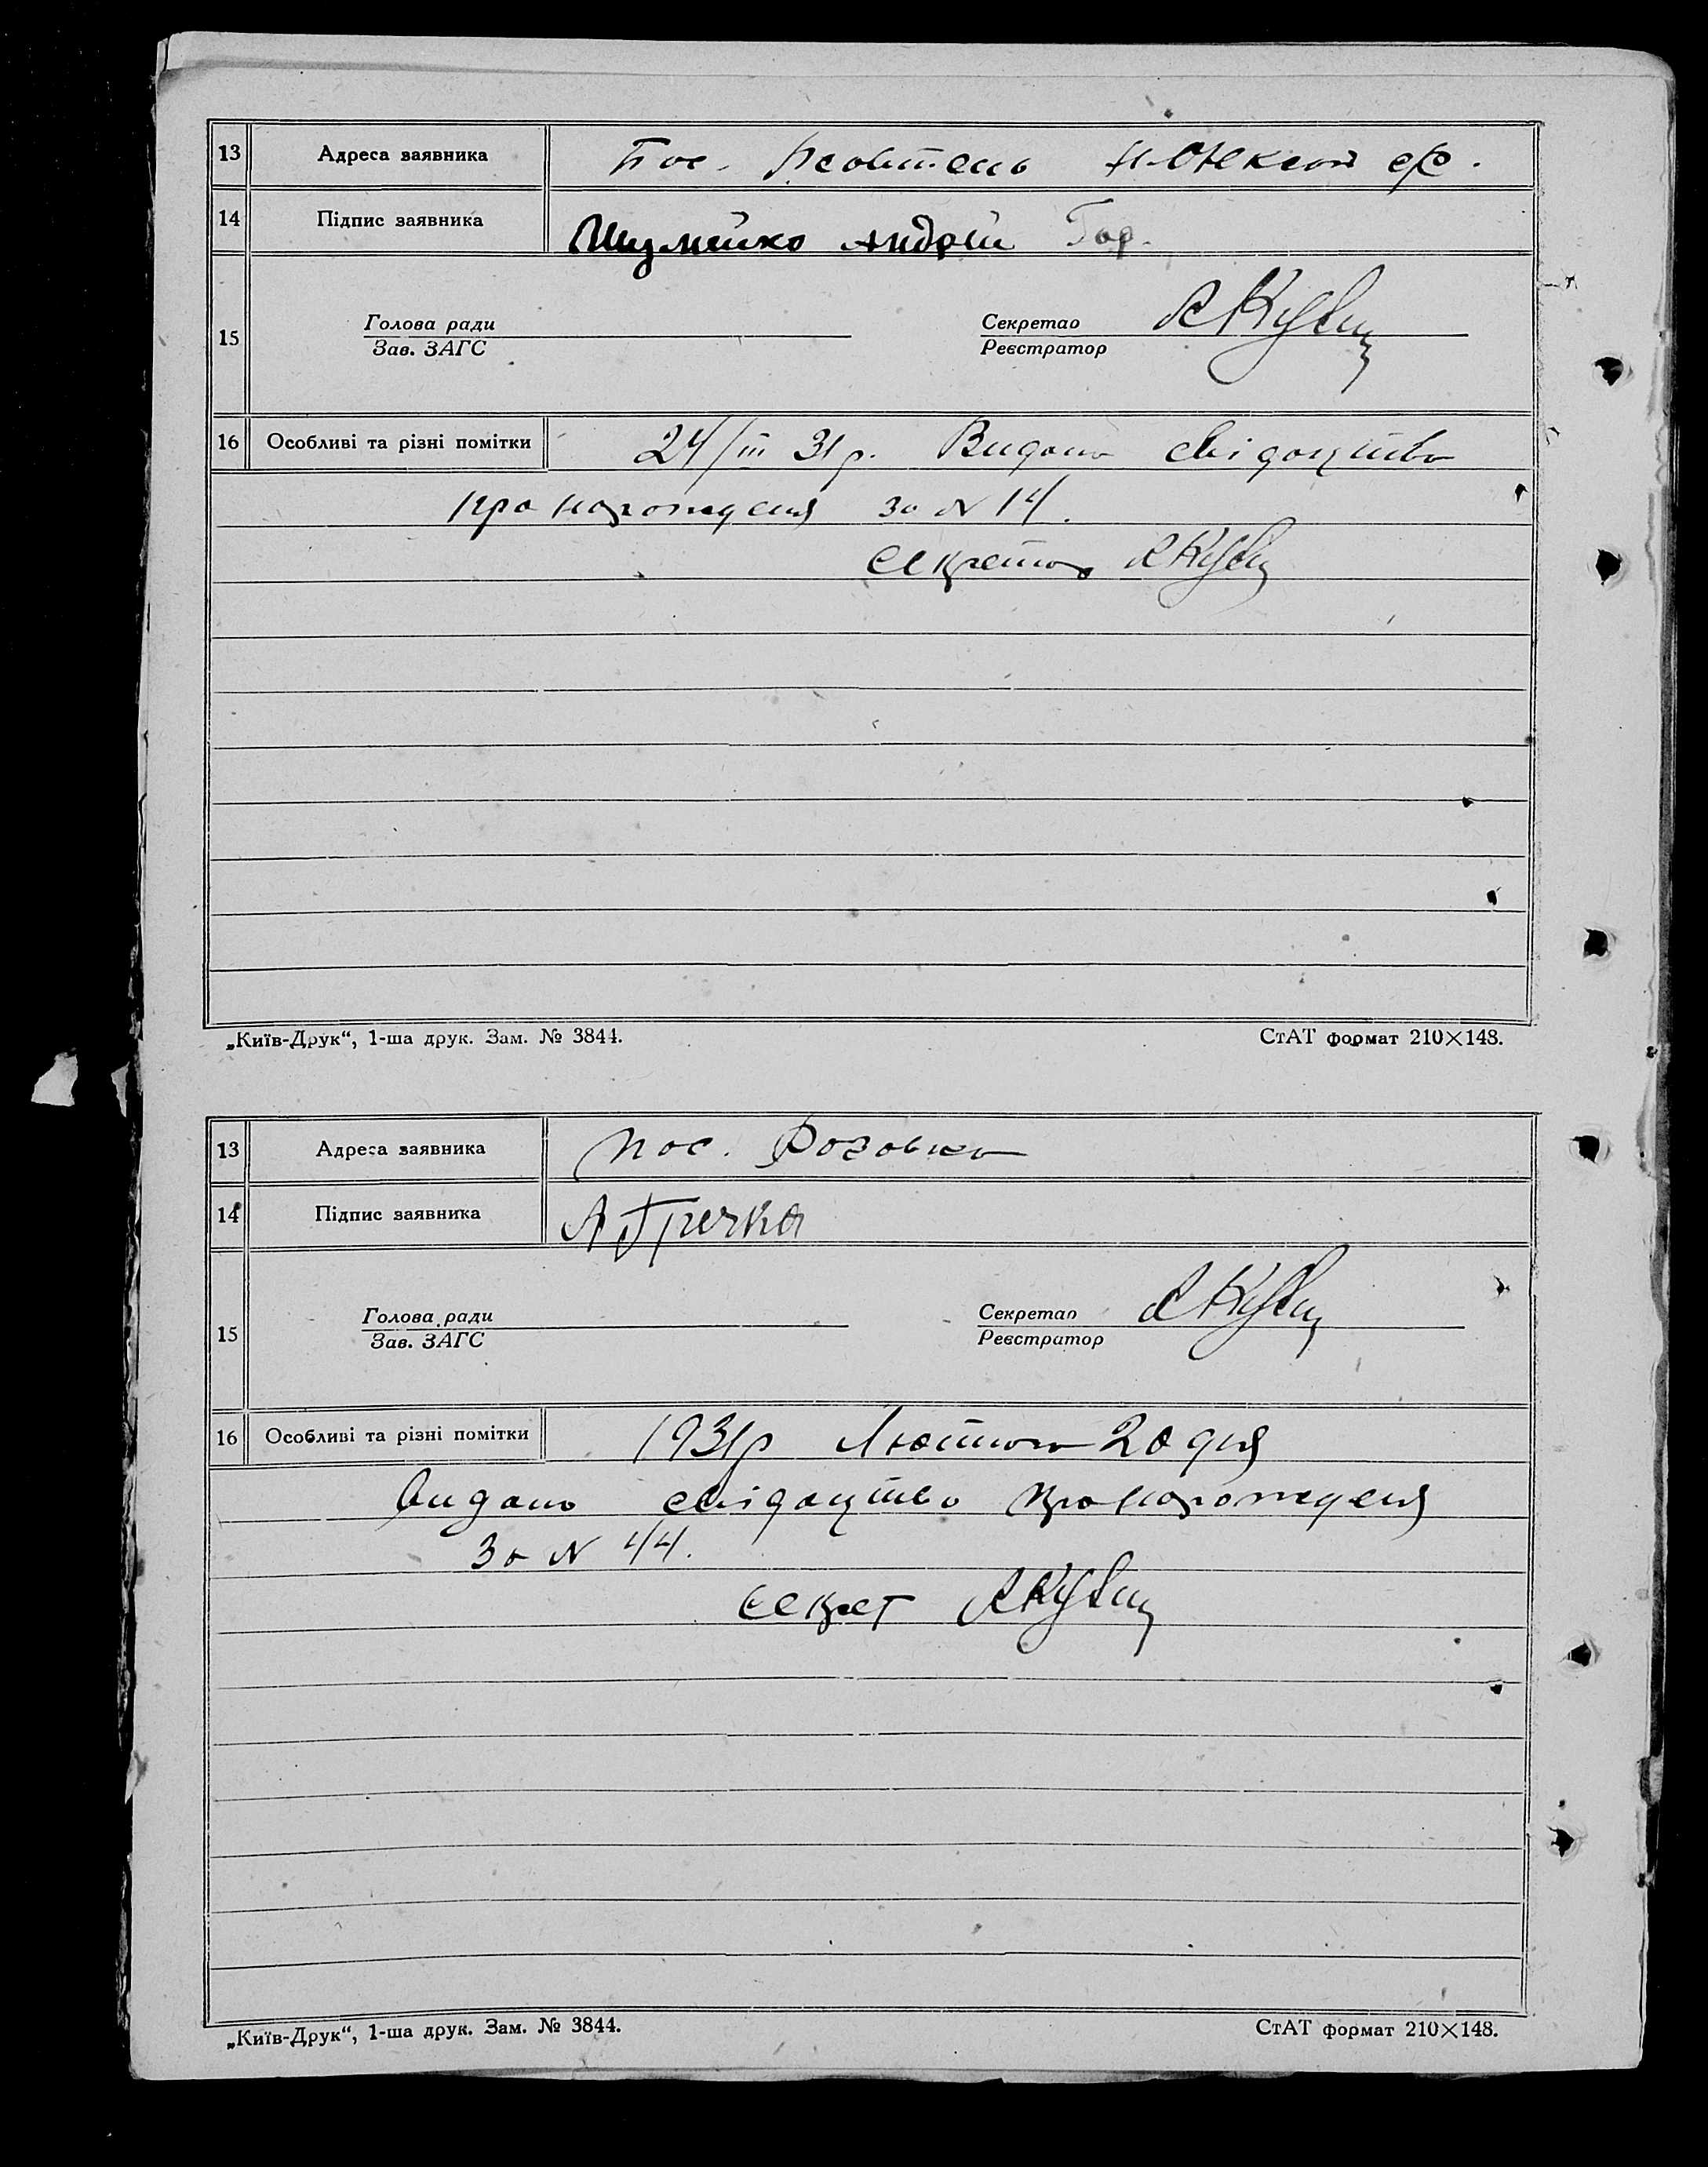 13 Адреса заявника Пос. Жовтень
14 Підпис заявника Шумейко Андрій
15 Голова ради Секретар
Зав. ЗАГС Реєстратор
16 Особливі та різні помітки 24/III 31р. Видано свідоцтво
про народження за N 14.
секретар
„Київ-Друк“, 1-ша друк. Зам. № 3844. СтАТ формат 210×148.
13 Адреса заявника пос. Роговка
14 Підпис заявника А Гречка
15 Голова ради Секретар
Зав. ЗАГС Реєстратор
16 Особливі та різні помітки 1931р Лютого 20 дня
Видано свідоцтво про народженя
За N 44.
секрет
„Київ-Друк“, 1-ша друк. Зам. № 3844. СтАТ формат 210×148.